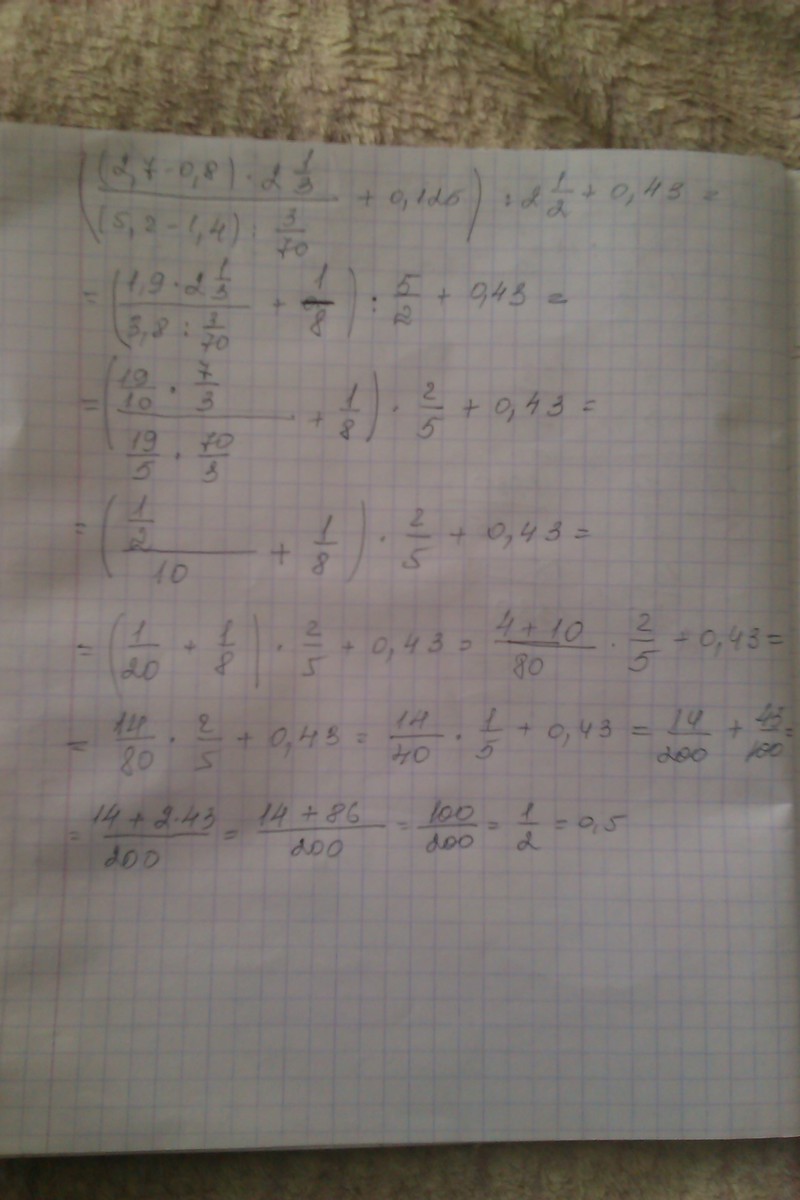 ((2,7-0,8)·2 1/3 / (5,2-1,4) : 3/70 + 0,125) : 2 1/2 + 0,43 =
= (1,9·2 1/3 / 3,8 : 3/70 + 1/8) : 5/2 + 0,43 =
= (19/10 · 7/3 / 19/5 · 70/3 + 1/8) · 2/5 + 0,43 =
= (1/2 / 10 + 1/8) · 2/5 + 0,43 =
= (1/20 + 1/8) · 2/5 + 0,43 = 4+10/80 · 2/5 + 0,43 =
= 14/80 · 2/5 + 0,43 = 14/40 · 1/5 + 0,43 = 14/200 + 43/100 =
= 14+2·43/200 = 14+86/200 = 100/200 = 1/2 = 0,5